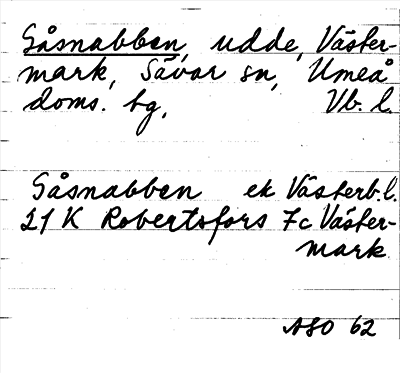 Gåsnabben, udde, Väster-
mark, Sävar sn, Umeå
doms. tg, Vb. l.
Gåsnabben ek Västerb.l.
21 K Robertsfors 7c Väster-
mark
ASO 62